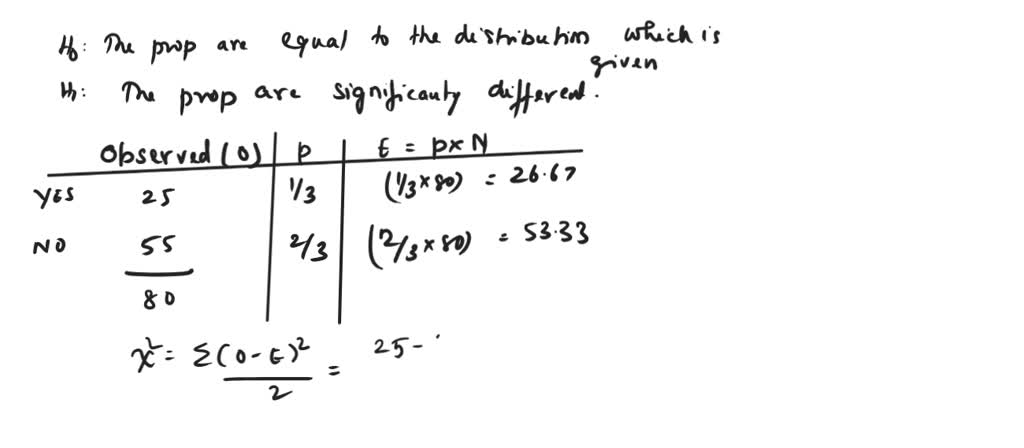 H0: The prop are equal to the distribution which is
given
H1: The prop are significantly different.
Observed (O) P E = p×N
YES 25 1/3 (1/3 × 80) = 26.67
NO 55 2/3 (2/3 × 80) = 53.33
80
χ² = Σ(O-E)²/2 = 25-